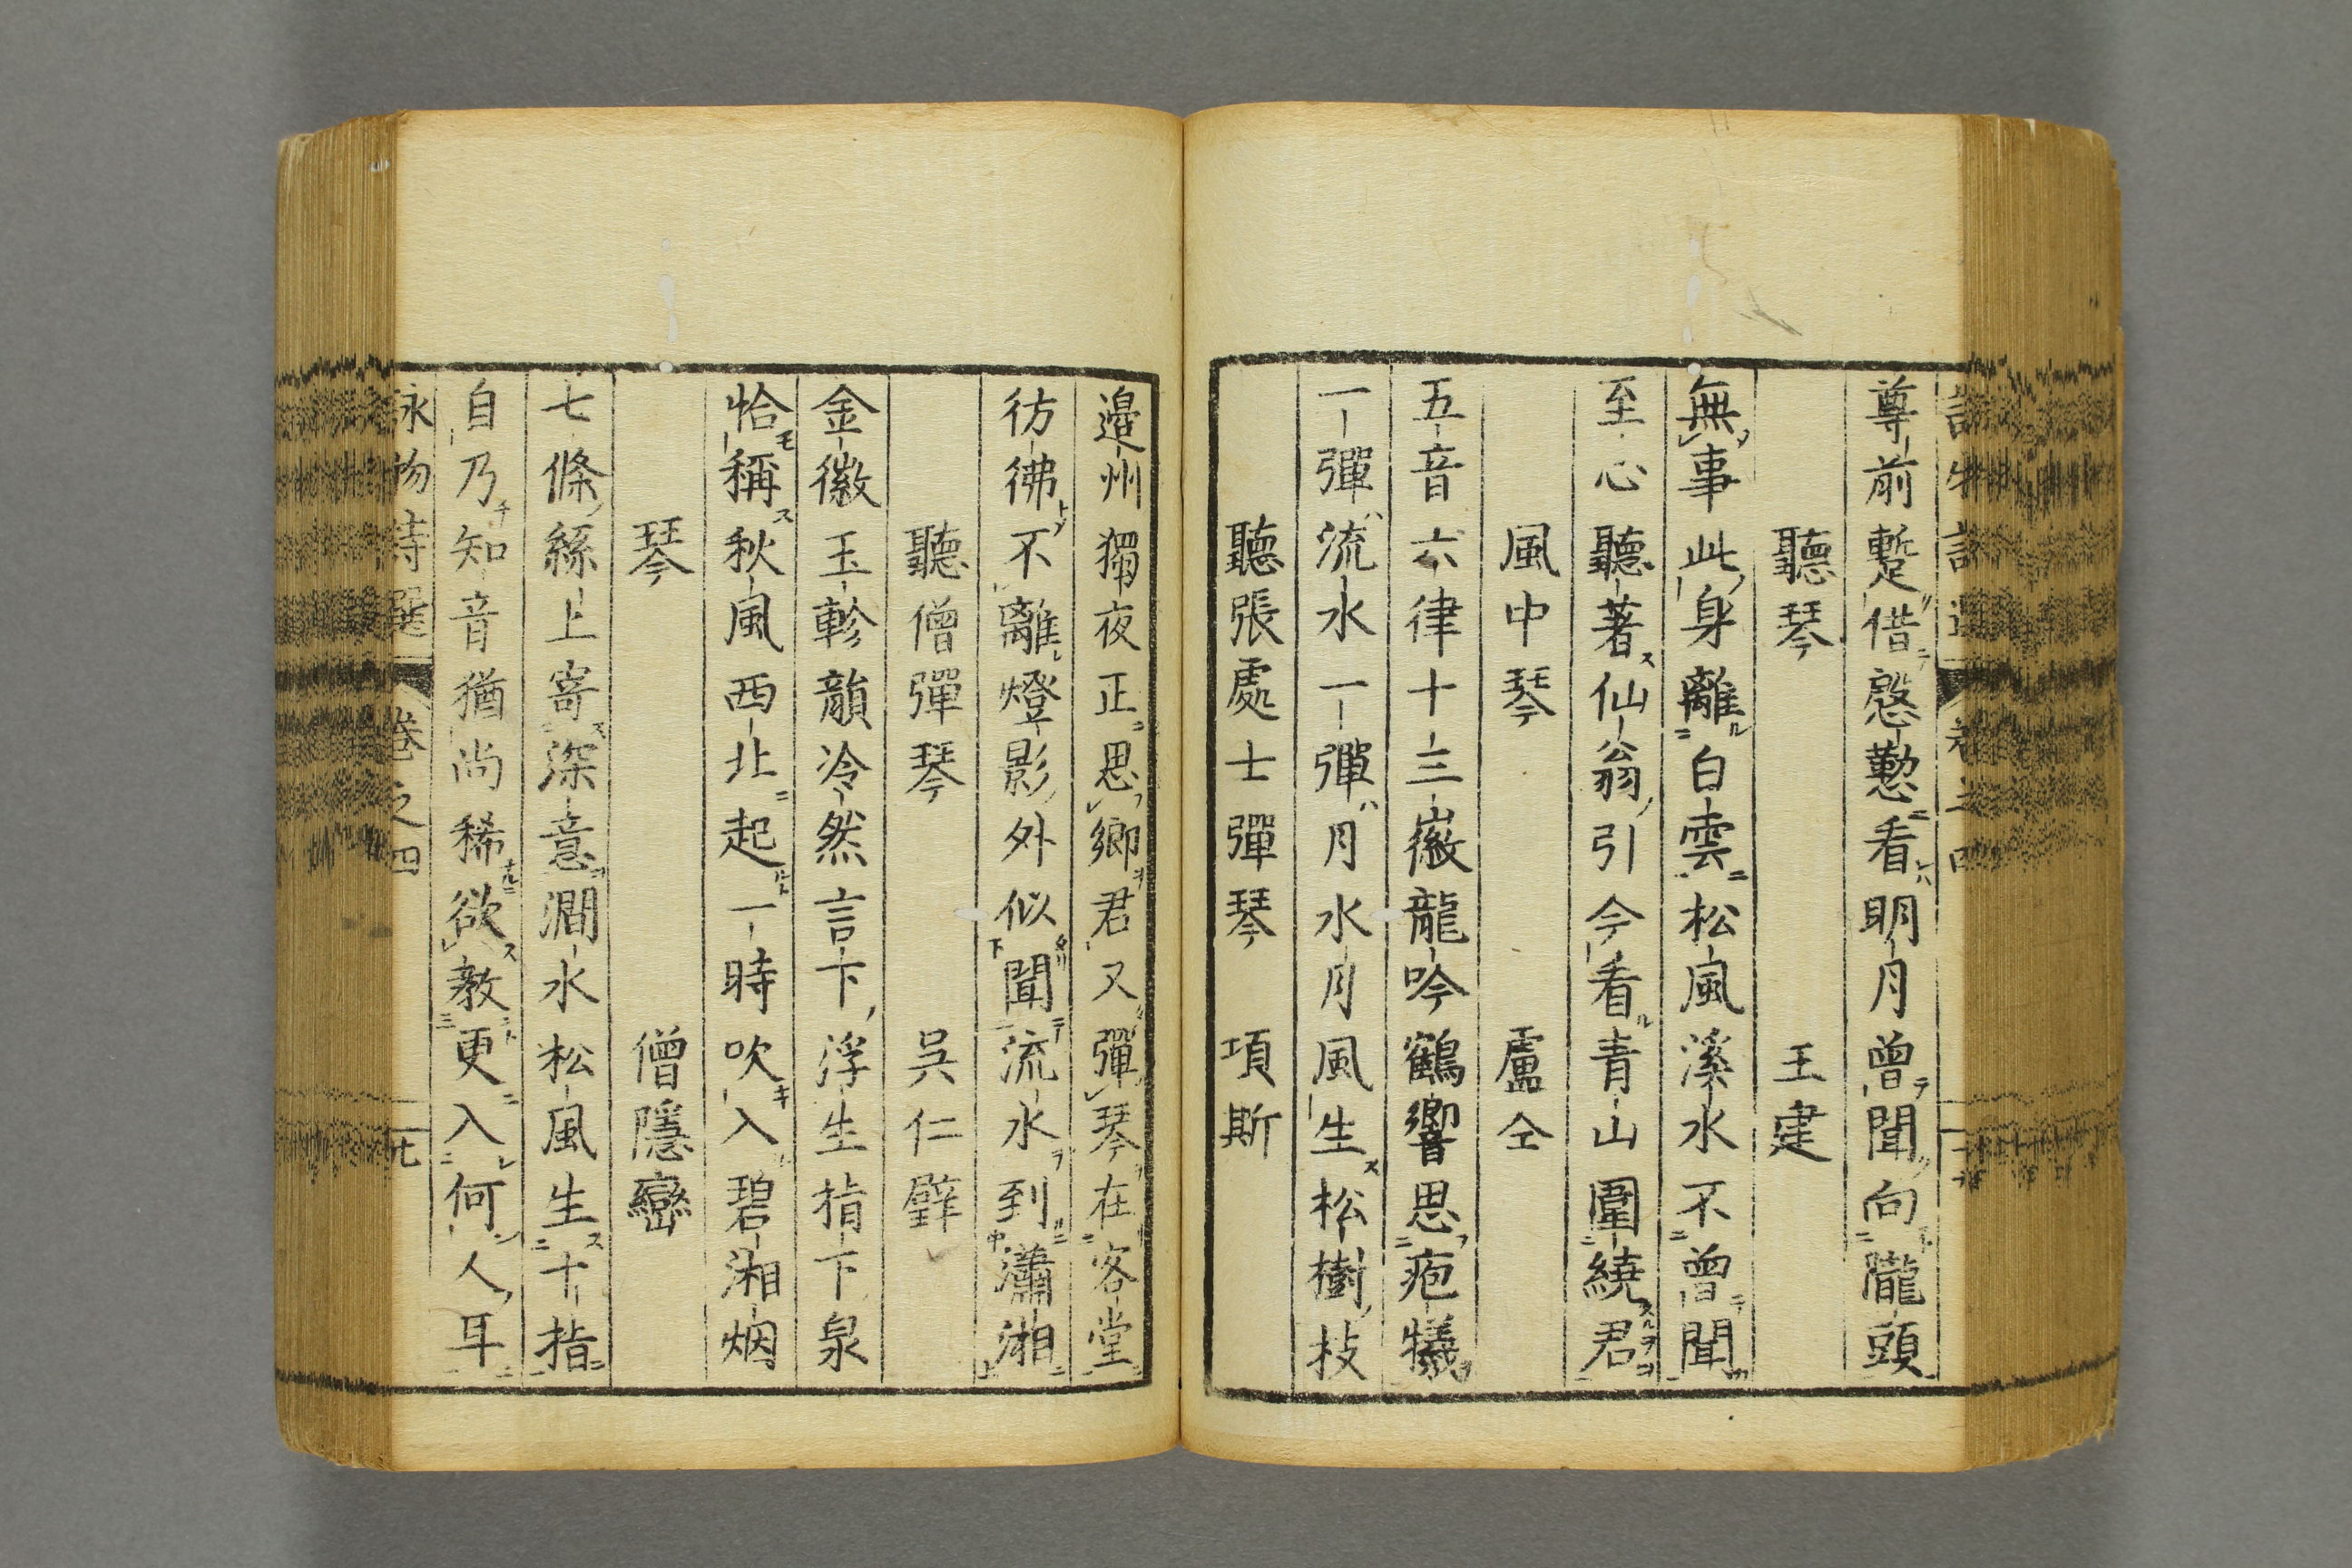 尊前蹔借慇懃看明月曾聞向隴頭
聽琴　王建
無事此身離白雲松風溪水不曾聞
至心聽著仙翁引今看青山圍繞君
風中琴　盧仝
五音六律十三徽龍吟鶴響思庖犧
一彈流水一彈月水月風生松樹枝
聽張處士彈琴　項斯
邉州獨夜正思鄉君又彈琴在客堂
彷彿不離燈影外似聞流水到瀟湘
聽僧彈琴　吳仁璧
金徽玉軫韻冷然言下浮生指下泉
恰稱秋風西北起一時吹入碧湘烟
琴　僧隱巒
七條絲上寄深意澗水松風生十指
自乃知音猶尚稀欲教更入何人耳
詠物詩選　卷之四